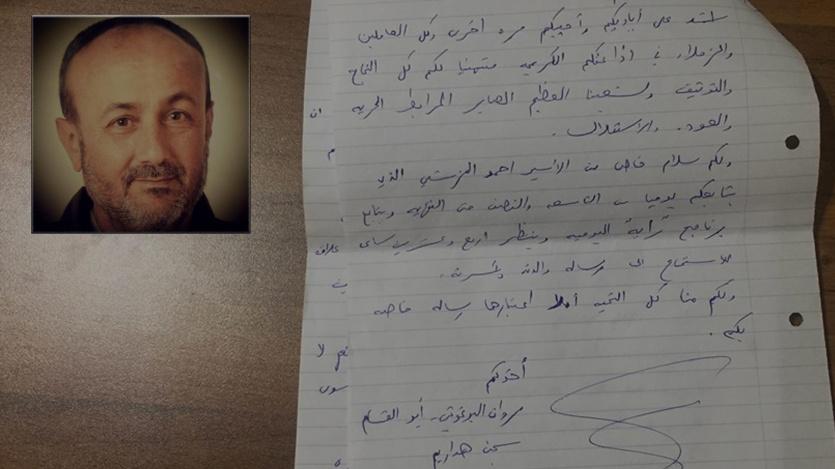 لنشد على أياديكم وأحييكم مره اخرى وكل العاملين
والزملاء في اذاعتكم الكريمه متمنيا لكم كل النجاح
والتوفيق ولشعبنا العظيم الصابر المرابط الحريه
والعوده والاستقلال.
ولكم سلام خاص من الأسير احمد البرغوثي الذي
يتابعكم يوميا التاسعه والنصف حتى ويتابع
برنامج "راية" اليوميه وينتظر اربع وعشرين ساعه
للاستماع الى رساله والدته وأسرته.
ولكم منا كل التحيه آملا اعتبارها رساله خاصه
بكم.
أخوكم
مروان البرغوثي - أبو القسام
سجن هداريم
ان
م
علاف
لا
سوى